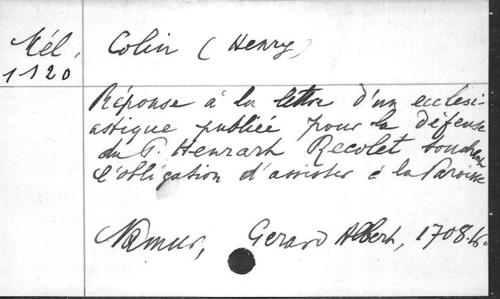 Mél. Colin (Henry)
1120
Réponse à la lettre d'un ecclési-
astique publiée pour la défense
du P. Henrart Recolet touchant
l'obligation d'assister à la Paroisse
Namur, Gerard Albert, 1708